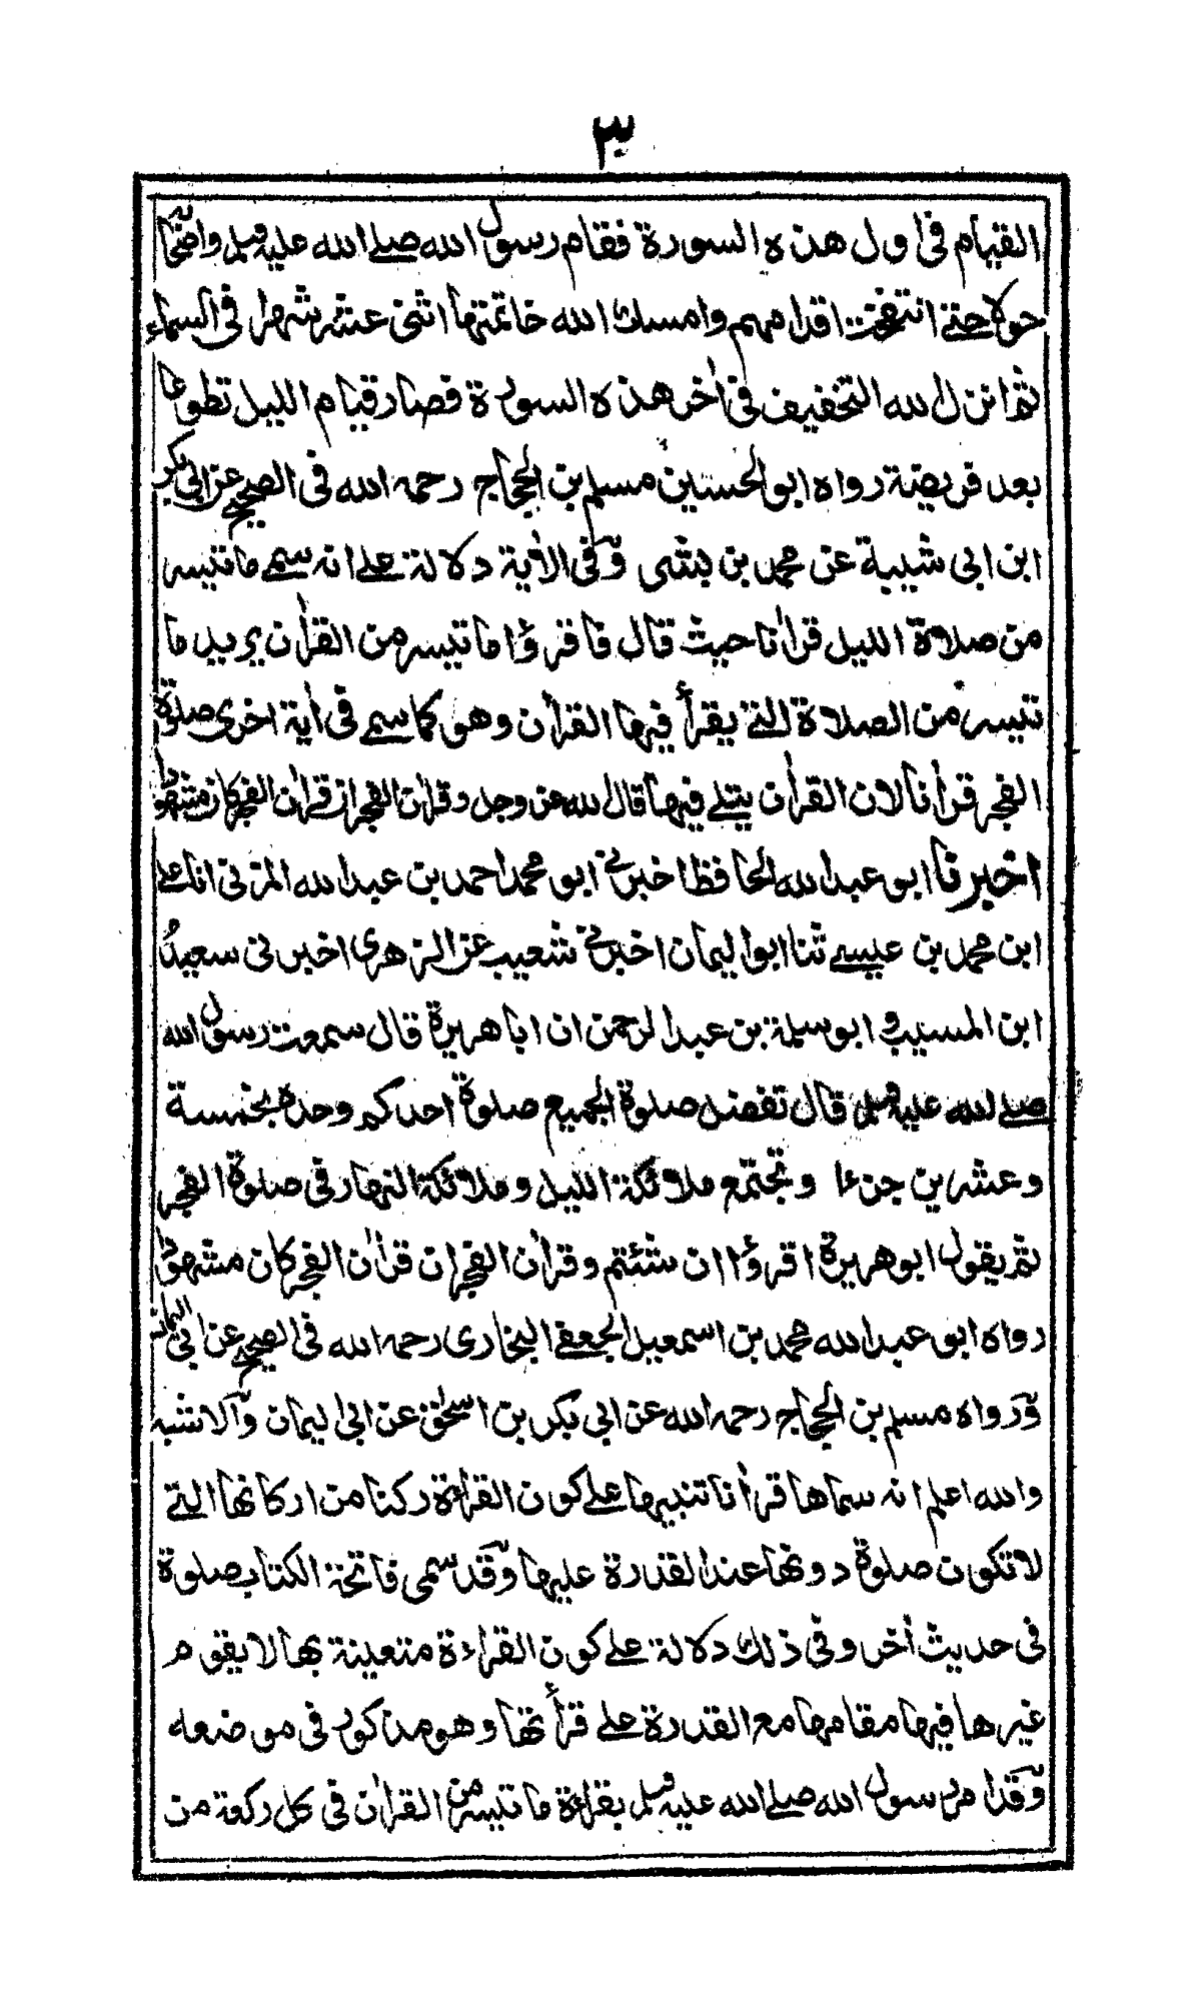 ٣
القيام في اول هذه السورة فقام رسول الله صلے الله عليه وسلم واصحٰا
حولا حتے انتفخت اقدامهم وامسك الله خاتمتها اثنى عشر شهرا في السماء
ثم انزل الله التخفيف في اٰخر هذه السورة فصار قيام الليل تطوعا
بعد فريضة رواه ابو الحسين مسلم بن الحجاج رحمه الله في الصحيح عن ابي بكر
ابن ابي شيبة عن محمد بن بشر وفي الاٰية دلالة علے انه سمے ما تيسر
من صلاة الليل قراٰنا حيث قال فاقرؤا ما تيسر من القراٰن يريد ما
تيسر من الصلاة التے يقرأ فيها القراٰن وهو كما سمے في اٰية اخرى صلوة
الفجر قراٰنا لان القراٰن يتلے فيها قال الله عز وجل وقراٰن الفجر ان قراٰن الفجر كان مشهودا
اخبرنا ابو عبد الله الحافظ اخبرنے ابو محمد احمد بن عبد الله المزني انا علے
ابن محمد بن عيسے ثنا ابو اليمان اخبرنے شعيب عن الزهرى اخبرني سعيد
ابن المسيب و ابو سلمة بن عبد الرحمن ان ابا هريرة قال سمعت رسول الله
صلے الله عليه وسلم قال تفضل صلوة الجميع صلوة احدكم وحده بخمسة
وعشرين جزءا وتجتمع ملائكة الليل وملائكة النهار في صلوة الفجر
ثم يقول ابو هريرة اقرؤا ان شئتم وقراٰن الفجر ان قراٰن الفجر كان مشهودا
رواه ابو عبد الله محمد بن اسمعيل الجعفے البخارى رحمه الله في الصحيح عن ابي اليمان
ورواه مسلم بن الحجاج رحمه الله عن ابي بكر بن اسحٰق عن ابي اليمان والاشبه
والله اعلم انه سماها قراٰنا تنبيها علے كون القراءة ركنا من اركانها التے
لا تكون صلوة دونها عند القدرة عليها وقد سمى فاتحة الكتاب صلوة
في حديث اٰخر وفي ذلك دلالة علے كون القراءة متعينة بها لا يقوم
غيرها فيها مقامها مع القدرة علے قرأتها وهو مذكور في موضعه
وقد امر رسول الله صلے الله عليه وسلم بقراءة ما تيسر من القراٰن في كل ركعة من